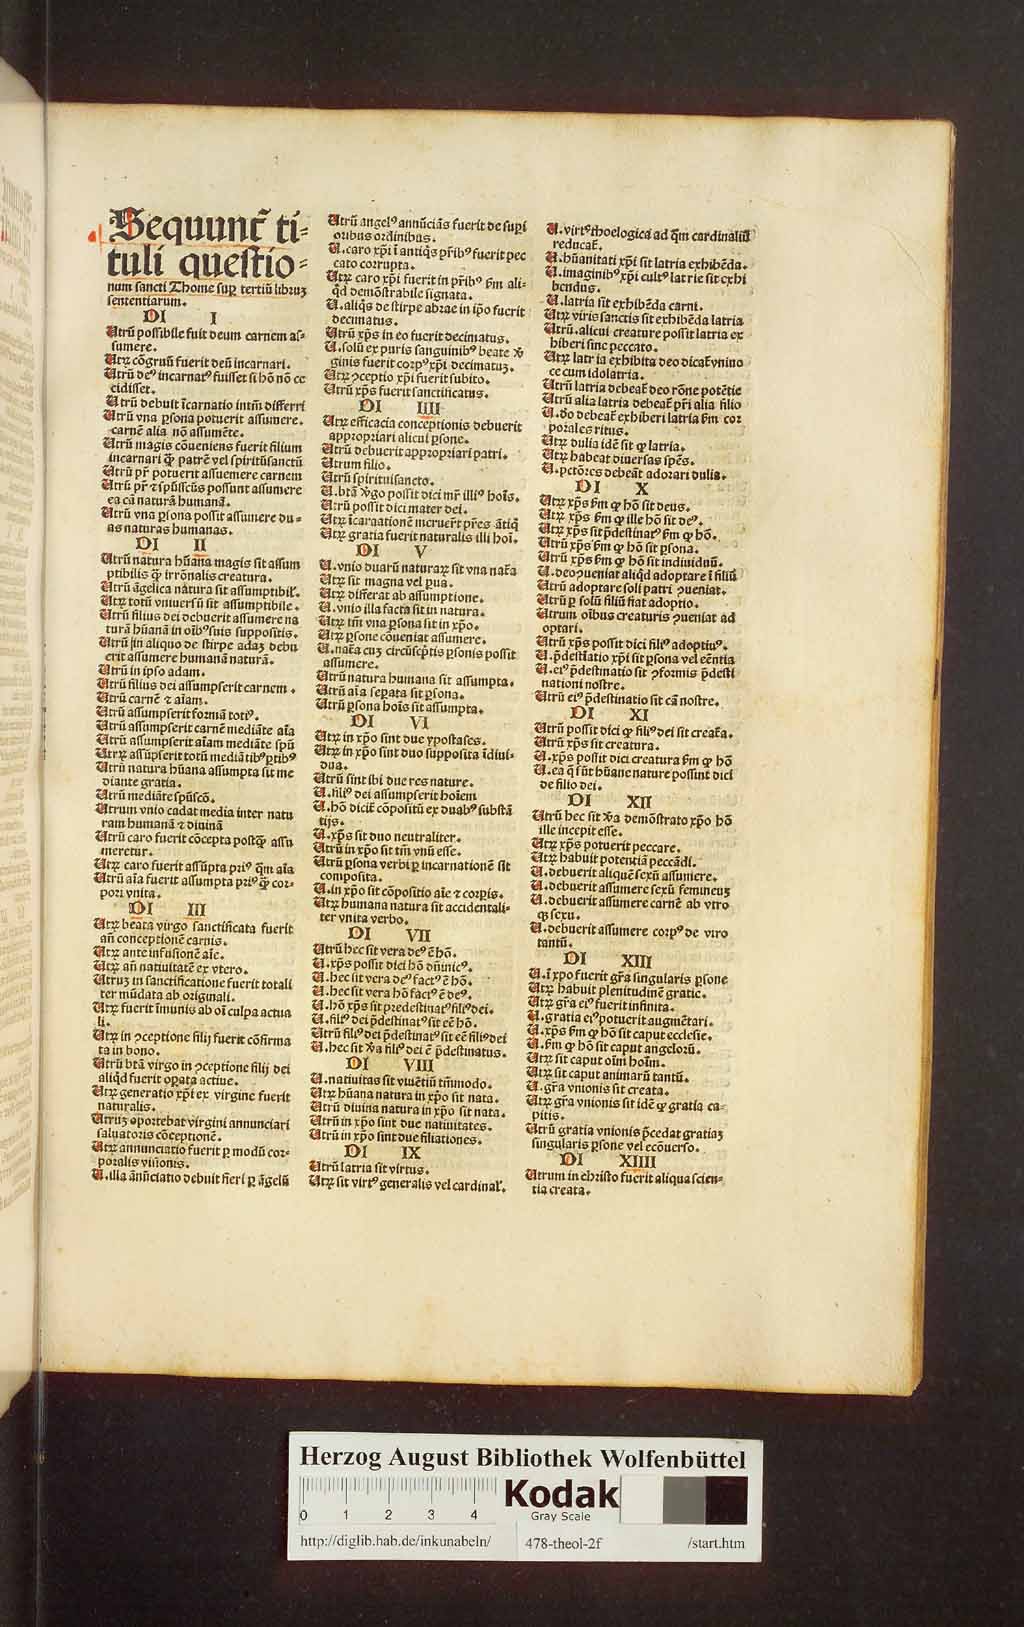 Sequunt̃ ti⸗
tuli questio⸗
num sancti Thome suꝑ tertiũ libruꝫ
sententiarum.
DI I
Utrũ possibile fuit deum carnem as⸗
sumere.
Utꝝ cõgruũ fuerit deũ incarnari.
Utrũ deꝰ incarnatꝰ fuisset si hõ nõ ce
cidisset.
Utrũ debuit ĩcarnatio intm̃ differri
Utrũ vna ꝑsona potuerit assumere.
carnẽ alia nõ assumẽte.
Utrũ magis cõueniens fuerit filium
incarnari ꝙ̃ patrẽ vel spiritũsanctũ
Utrũ pr̃ potuerit assuemere carnem
Utrũ pr̃ ⁊ spũsscũs possunt assumere
ea cã naturã humanã.
Utrũ vna ꝑsona possit assumere du⸗
as naturas humanas.
DI II
Utrũ natura hũana magis sit assum
ptibilis ꝙ̃ irrõnalis creatura.
Utrũ ãgelica natura sit assumptibil'.
Utꝝ totũ vniuersũ sit assumptibile.
Utrũ filius dei debuerit assumere na
turã hũanã in oĩbꝰ suis suppositis.
Utrũ in aliquo de stirpe adaꝫ debu
erit assumere humanã naturã.
Utrũ in ipso adam.
Utrũ filius dei assumpserit carnem.
Utrũ carnẽ ⁊ aĩam.
Utrũ assumpserit formã totiꝰ.
Utrũ assumpserit carnẽ mediãte aĩa
Utrũ assumpserit aĩam mediãte spũ
Utrꝝ assũpserit totũ mediãtibꝰ ꝑtibꝰ
Utrũ natura hũana assumpta sit me
diante gratia.
Utrũ mediãte spũscõ.
Utrum vnio cadat media inter natu
ram humanã ⁊ diuinã
Utrũ caro fuerit cõcepta postꝙ̃ assu
meretur.
Utꝝ caro fuerit assũpta priꝰ q̃m aĩa
Utrũ aĩa fuerit assumpta priꝰ ꝙ̃ cor⸗
pori vnita.
DI III
Utꝝ beata virgo sanctificata fuerit
añ conceptionẽ carnis.
Utꝝ ante infusionẽ aĩe.
Utꝝ añ natiuitatẽ ex vtero.
Utruꝫ in sanctificatione fuerit totali
ter mũdata ab originali.
Utꝝ fuerit ĩmunis ab oĩ culpa actua
li.
Utꝝ in ꝯceptione filij fuerit cõfirma
ta in bono.
Utrũ btã virgo in ꝯceptione filij dei
aliqd̃ fuerit oꝑata actiue.
Utꝝ generatio xp̃i ex virgine fuerit
naturalis.
Utruꝫ oportebat virgini annunciari
saluatoris cõceptionẽ.
Utꝝ annunciatio fuerit ꝑ modũ cor⸗
poralis visionis.
U. illa ãnũciatio debuit fieri ꝑ ãgelũ
Utrũ angelꝰ annũciãs fuerit de suꝑi
oribus ordinibus.
U. caro xp̃i ĩ antiq̃s pr̃ibꝰ fuerit pec
cato corrupta.
Utꝝ caro xp̃i fuerit in pr̃ibꝰ ẜm ali⸗
q̃d demõstrabile signata.
U. aliq̃s de stirpe abrae in ip̃o fuerit
decimatus.
Utrũ xp̃s in eo fuerit decimatus.
U. solũ ex puris sanguinibꝰ beate ꝟ
ginis fuerit corpꝰ xp̃i decimatuꝫ.
Utꝝ ꝯceptio xp̃i fuerit subito.
Utrũ xp̃s fuerit sanctificatus.
DI IIII
Utꝝ efficacia conceptionis debuerit
appropriari alicui ꝑsone.
Utrũ debuerit appropriari patri.
Utrum filio.
Utrũ spirituisancto.
U. btã ꝟgo possit dici mr̃ illiꝰ hoĩs.
Utrũ possit dici mater dei.
Utꝝ ĩcarnationẽ meruer̃t pr̃es ãtiq̃
Utꝝ gratia fuerit naturalis illi hoĩ.
DI V
U. vnio duarũ naturaꝝ sit vna nat̃a
Utꝝ sit magna vel pua.
Utꝝ differat ab assumptione.
U. vnio illa facta sit in natura.
Utꝝ tm̃ vna ꝑsona sit in xp̃o.
Utꝝ ꝑsone cõueniat assumere.
U. nat̃a cuꝫ circũscẽptis ꝑsonis possit
assumere.
Utrũ natura humana sit assumpta.
Utrũ aĩa seꝑata sit ꝑsona.
Utrũ ꝑsona hoĩs sit assumpta.
DI VI
Utꝝ in xp̃o sint due ypostases.
Utꝝ in xp̃o sint duo supposita ĩdiui⸗
dua.
Utrũ sint ibi due res nature.
U. filiꝰ dei assumpserit hoĩem
U. hõ dicit̃ cõpositũ ex duabꝰ substã
tijs.
U. xp̃s sit duo neutraliter.
Utrũ in xp̃o sit tm̃ vnũ esse.
Utrũ ꝑsona verbi ꝑ incarnationẽ sit
composita.
U. in xp̃o sit cõpositio aĩe ⁊ corꝑis.
Utꝝ humana natura sit accidentali⸗
ter vnita verbo.
DI VII
Utrũ hec sit vera deꝰ ẽ hõ.
U. xp̃s possit dici hõ dñinicꝰ.
U. hec sit vera deꝰ factꝰ ẽ hõ.
U. hec sit vera hõ factꝰ ẽ deꝰ.
U. hõ xp̃s sit predestinatꝰ filiꝰ dei.
U. filiꝰ dei p̃destinatꝰ sit eẽ hõ.
Utrũ filiꝰ dei p̃destinatꝰ sit eẽ filiꝰ dei
U. hec sit ꝟa filiꝰ dei ẽ p̃destinatus.
DI VIII
U. natiuitas sit viuẽtiũ tm̃modo.
Utꝝ hũana natura in xp̃o sit nata.
Utrũ diuina natura in xp̃o sit nata.
Utrũ in xp̃o sint due natiuitates.
Utrũ in xp̃o sint due filiationes.
DI IX
Utrũ latria sit virtus.
Utꝝ sit virtꝰ generalis vel cardinal'.
U. virtꝰ thoelogica ad q̃m cardinaliũ
reducat̃.
U. hũanitati xp̃i sit latria exhibẽda.
U. imaginibꝰ xp̃i cultꝰ latrie sit exhi
bendus.
U. latria sit exhibẽda carni.
Utꝝ viris sanctis sit exhibẽda latria
Utrũ. alicui creature possit latria ex
hiberi sine peccato.
Utꝝ latria exhibita deo dicat̃ vnino
ce cum idolatria.
Utrũ latria debeat̃ deo rõne potẽtie
Utrũ alia latria debeat̃ pr̃i alia filio
U. do debeat̃ exhiberi latria ẜm cor
porales ritus.
Utꝝ dulia idẽ sit ꝙ latria.
Utꝝ habeat diuersas spẽs.
U. pctõres debeãt adorari dulia.
DI X
Utꝝ xp̃s ẜm ꝙ hõ sit deus.
Utꝝ xp̃s ẜm ꝙ ille hõ sit deꝰ.
Utꝝ xp̃s sit p̃destinatꝰ ẜm ꝙ hõ.
Utrũ xp̃s ẜm ꝙ hõ sit ꝑsona.
Utrũ xp̃s ẜm ꝙ hõ sit indiuiduũ.
U. deo ꝯueniat aliq̃d adoptare ĩ filiũ
Utrũ adoptare soli patri ꝯueniat.
Utrũ ꝑ solũ filiũ fiat adoptio.
Utrum oĩbus creaturis ꝯueniat ad
optari.
Utrũ xp̃s possit dici filiꝰ adoptiuꝰ.
U. p̃destĩatio xp̃i sit ꝑsona vel eẽntia
U. eiꝰ p̃destinatio sit ꝯformis p̃desti
nationi nostre.
Utrũ eiꝰ p̃destinatio sit cã nostre.
DI XI
Utrũ possit dici ꝙ filiꝰ dei sit creat̃a.
Utrũ xp̃s sit creatura.
U. xp̃s possit dici creatura ẜm ꝙ hõ
U. ea q̃ sũt hũane nature possunt dici
de filio dei.
DI XII
Utrũ hec sit ꝟa demõstrato xp̃o hõ
ille incepit esse.
Utꝝ xp̃s potuerit peccare.
Utꝝ habuit potentiã peccãdi.
U. debuerit aliquẽ sexũ assumere.
U. debuerit assumere sexũ femineuꝫ
U. debuerit assumere carnẽ ab vtro
qꝫ sexu.
U. debuerit assumere corpꝰ de viro
tantũ.
DI XIII
U. ĩ xpo fuerit gr̃a singularis ꝑsone
Utꝝ habuit plenitudinẽ gratie.
Utꝝ gr̃a eiꝰ fuerit infinita.
U. gratia eiꝰ potuerit augmẽtari.
U. xp̃s ẜm ꝙ hõ sit caput ecclesie.
U. ẜm ꝙ hõ sit caput angelorũ.
Utꝝ sit caput oĩm hoĩm.
Utꝝ sit caput animarũ tantũ.
U. gr̃a vnionis sit creata.
Utꝝ gr̃a vnionis sit idẽ ꝙ gratia ca⸗
pitis.
Utrũ gratia vnionis p̃cedat gratiaꝫ
singularis ꝑsone vel ecõuerso.
DI XIIII
Utrum in christo fuerit aliqua scien⸗
tia creata.
Herzog August Bibliothek Wolfenbüttel
0 1 2 3 4
Kodak
Gray Scale
http://diglib.hab.de/inkunabeln/ 478-theol-2f /start.htm